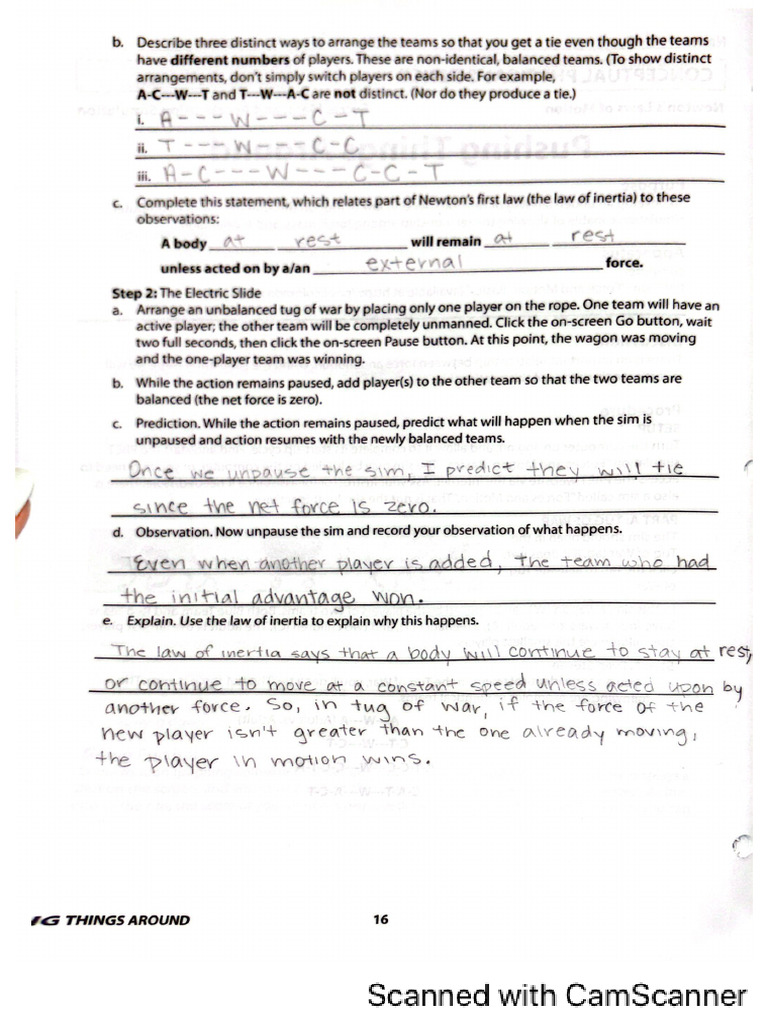 b. Describe three distinct ways to arrange the teams so that you get a tie even though the teams
have different numbers of players. These are non-identical, balanced teams. (To show distinct
arrangements, don't simply switch players on each side. For example,
A-C---W---T and T---W---A-C are not distinct. (Nor do they produce a tie.)
i. A - - - W - - - C - T
ii. T - - - W - - - C - C
iii. A - C - - - W - - - C - C - T
c. Complete this statement, which relates part of Newton's first law (the law of inertia) to these
observations:
A body at rest will remain at rest
unless acted on by a/an external force.
Step 2: The Electric Slide
a. Arrange an unbalanced tug of war by placing only one player on the rope. One team will have an
active player; the other team will be completely unmanned. Click the on-screen Go button, wait
two full seconds, then click the on-screen Pause button. At this point, the wagon was moving
and the one-player team was winning.
b. While the action remains paused, add player(s) to the other team so that the two teams are
balanced (the net force is zero).
c. Prediction. While the action remains paused, predict what will happen when the sim is
unpaused and action resumes with the newly balanced teams.
Once we unpause the sim, I predict they will tie
since the net force is zero.
d. Observation. Now unpause the sim and record your observation of what happens.
Even when another player is added, the team who had
the initial advantage won.
e. Explain. Use the law of inertia to explain why this happens.
The law of inertia says that a body will continue to stay at rest,
or continue to move at a constant speed unless acted upon by
another force. So, in tug of war, if the force of the
new player isn't greater than the one already moving,
the player in motion wins.
THINGS AROUND 16
Scanned with CamScanner